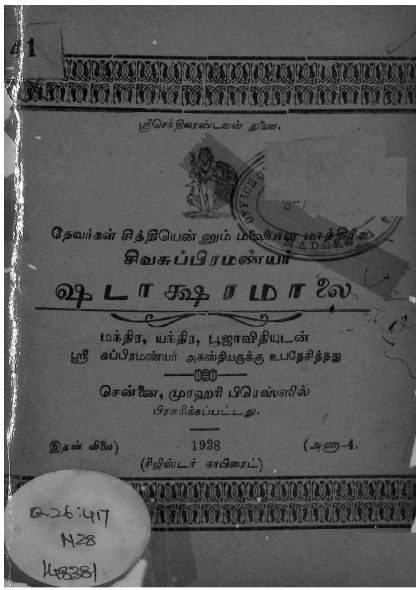 41
ஸ்ரீசெந்திலாண்டவன் துணை.
OFFICE OF
MADRAS
தேவர்கள் சித்தியென்னும் மலையாள மாந்திரீக
சிவசுப்பிரமண்யர்
ஷடாக்ஷரமாலை
மந்திர, யந்திர, பூஜாவிதியுடன்
ஸ்ரீ சுப்பிரமண்யர் அகஸ்தியருக்கு உபதேசித்தது
சென்னை, முரஹரி பிரெஸ்ஸில்
பிரசுரிக்கப்பட்டது.
இதன் விலை) 1928 (அணா-4.
(சிஜிஸ்டர் காபிரைட்)
Q-26:417
N28
148381